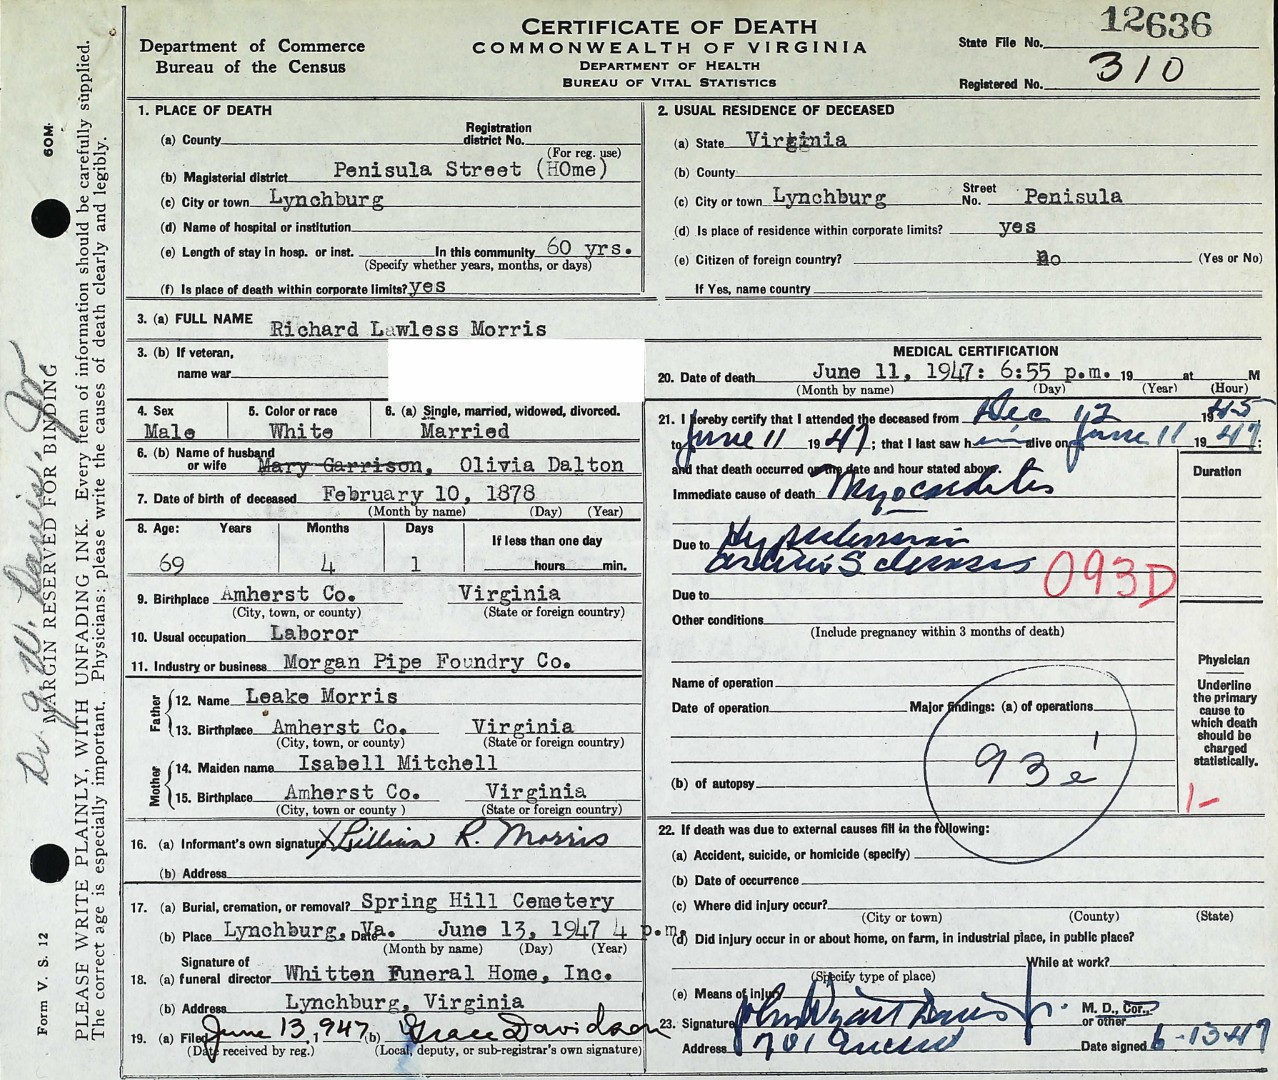 CERTIFICATE OF DEATH
COMMONWEALTH OF VIRGINIA
DEPARTMENT OF HEALTH
BUREAU OF VITAL STATISTICS
Department of Commerce
Bureau of the Census
12636
State File No.
310
Registered No.
60M.
MARGIN RESERVED FOR BINDING
Form V. S. 12
PLEASE WRITE PLAINLY, WITH UNFADING INK. Every item of information should be carefully supplied.
The correct age is especially important. Physicians; please write the causes of death clearly and legibly.
1. PLACE OF DEATH
(a) County Registration district No.
(For reg. use)
(b) Magisterial district Penisula Street (HOme)
(c) City or town Lynchburg
(d) Name of hospital or institution
(e) Length of stay in hosp. or inst. In this community 60 yrs.
(Specify whether years, months, or days)
(f) Is place of death within corporate limits? yes
2. USUAL RESIDENCE OF DECEASED
(a) State Virginia
(b) County
(c) City or town Lynchburg Street No. Penisula
(d) Is place of residence within corporate limits? yes
(e) Citizen of foreign country? no (Yes or No)
If Yes, name country
3. (a) FULL NAME Richard Lawless Morris
3. (b) If veteran,
name war
4. Sex 5. Color or race 6. (a) Single, married, widowed, divorced.
Male White Married
6. (b) Name of husband
or wife Mary Garrison, Olivia Dalton
7. Date of birth of deceased February 10, 1878
(Month by name) (Day) (Year)
8. Age: Years Months Days If less than one day
69 4 1 hours min.
9. Birthplace Amherst Co. Virginia
(City, town, or county) (State or foreign country)
10. Usual occupation Laboror
11. Industry or business Morgan Pipe Foundry Co.
Father
12. Name Leake Morris
13. Birthplace Amherst Co. Virginia
(City, town, or county) (State or foreign country)
Mother
14. Maiden name Isabell Mitchell
15. Birthplace Amherst Co. Virginia
(City, town or county ) (State or foreign country)
16. (a) Informant's own signature X Lillian R. Morris
(b) Address
17. (a) Burial, cremation, or removal? Spring Hill Cemetery
(b) Place Lynchburg, Va. Date June 13, 1947 4 p.m.
(Month by name) (Day) (Year)
Signature of
18. (a) funeral director Whitten Funeral Home, Inc.
(b) Address Lynchburg, Virginia
19. (a) Filed June 13, 1947 (b) Grace Davidson
(Date received by reg.) (Local, deputy, or sub-registrar's own signature)
MEDICAL CERTIFICATION
20. Date of death June 11, 1947: 6:55 p.m. 19 at M
(Month by name) (Day) (Year) (Hour)
21. I hereby certify that I attended the deceased from Dec 12 1945
to June 11 1947; that I last saw him alive on June 11 1947:
and that death occurred on the date and hour stated above.
Immediate cause of death Myocarditis
Duration
Due to Hypertension
arterio Sclerosis
093D
Due to
Other conditions
(Include pregnancy within 3 months of death)
Name of operation
Date of operation Major findings: (a) of operations
93e
(b) of autopsy
Physician
Underline
the primary
cause to
which death
should be
charged
statistically.
1-
22. If death was due to external causes fill in the following:
(a) Accident, suicide, or homicide (specify)
(b) Date of occurrence
(c) Where did injury occur?
(City or town) (County) (State)
(d) Did injury occur in or about home, on farm, in industrial place, in public place?
While at work?
(Specify type of place)
(e) Means of injury
23. Signature John Wyatt Davis Jr. M. D., Cor., or other
Address 701 Date signed 6-13-47